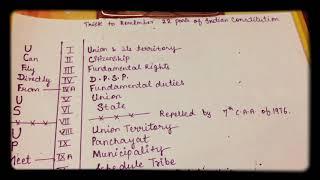 Trick to Remember 22 parts of Indian Constitution
U I Union & its territory
Can II Citizenship
Fly III Fundamental Rights
Directly IV D.P.S.P.
From IVA Fundamental duties
U V Union
S VI State
x x x VII x x x Repelled by 7th C.A.A of 1976.
U VIII Union Territory
P IX Panchayat
Meet IXA Municipality
X Schedule Tribe